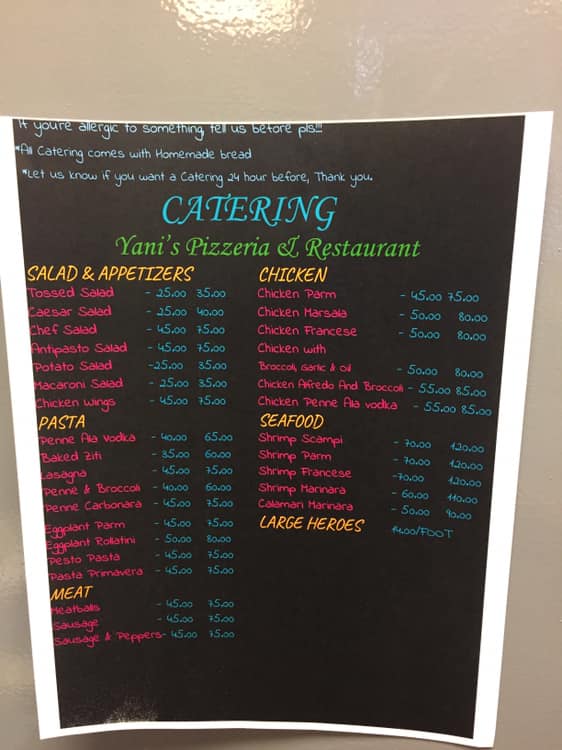 If youre allergic to something tell us before pls!!!
*All Catering comes with Homemade bread
*Let us know if you want a Catering 24 hour before, Thank you.
CATERING
Yani's Pizzeria & Restaurant
SALAD & APPETIZERS
Tossed Salad - 25.00 35.00
Caesar Salad - 25.00 40.00
Chef Salad - 45.00 75.00
Antipasto Salad - 45.00 75.00
Potato Salad -25.00 35.00
Macaroni Salad - 25.00 35.00
Chicken Wings - 45.00 75.00
PASTA
Penne Ala Vodka - 40.00 65.00
Baked Ziti - 35.00 60.00
Lasagna - 45.00 75.00
Penne & Broccoli - 40.00 60.00
Penne Carbonara - 45.00 75.00
Eggplant Parm - 45.00 75.00
Eggplant Rollatini - 50.00 80.00
Pesto Pasta - 45.00 75.00
Pasta Primavera - 45.00 75.00
MEAT
Meatballs - 45.00 75.00
Sausage - 45.00 75.00
Sausage & Peppers- 45.00 75.00
CHICKEN
Chicken Parm - 45.00 75.00
Chicken Marsala - 50.00 80.00
Chicken Francese - 50.00 80.00
Chicken with
Broccoli, Garlic & Oil - 50.00 80.00
Chicken Alfredo And Broccoli - 55.00 85.00
Chicken Penne Ala vodka - 55.00 85.00
SEAFOOD
Shrimp Scampi - 70.00 120.00
Shrimp Parm - 70.00 120.00
Shrimp Francese -70.00 120.00
Shrimp Marinara - 60.00 110.00
Calamari Marinara - 50.00 90.00
LARGE HEROES 14.00/FOOT